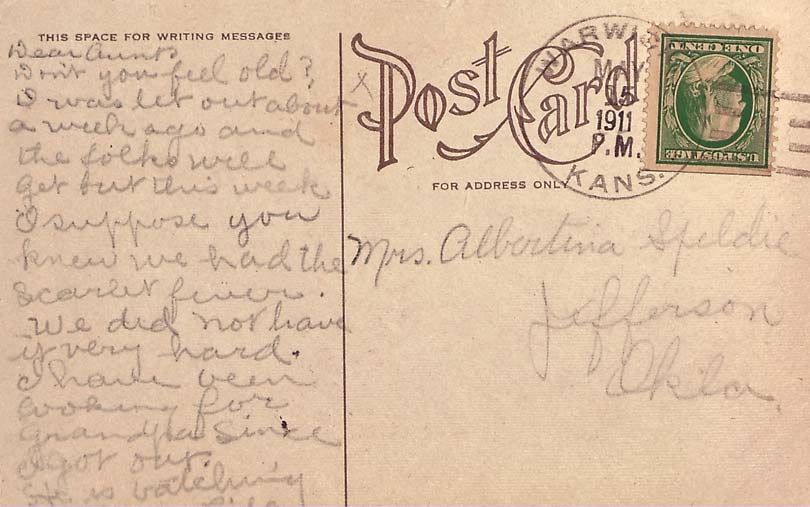 THIS SPACE FOR WRITING MESSAGES
Dear Aunt
Don't you feel old?
I was let out about
a week ago and
the folks will
get out this week
I suppose you
knew we had the
scarlet fever.
We did not have
it very hard.
I have been
cooking for
Grandpa since
I got out.
He is batching
Post Card
FOR ADDRESS ONLY
HARWI
MAY
15
1911
P.M.
KANS.
ONE CENT
U.S. POSTAGE
Mrs. Albertina Speldie
Jefferson
Okla.